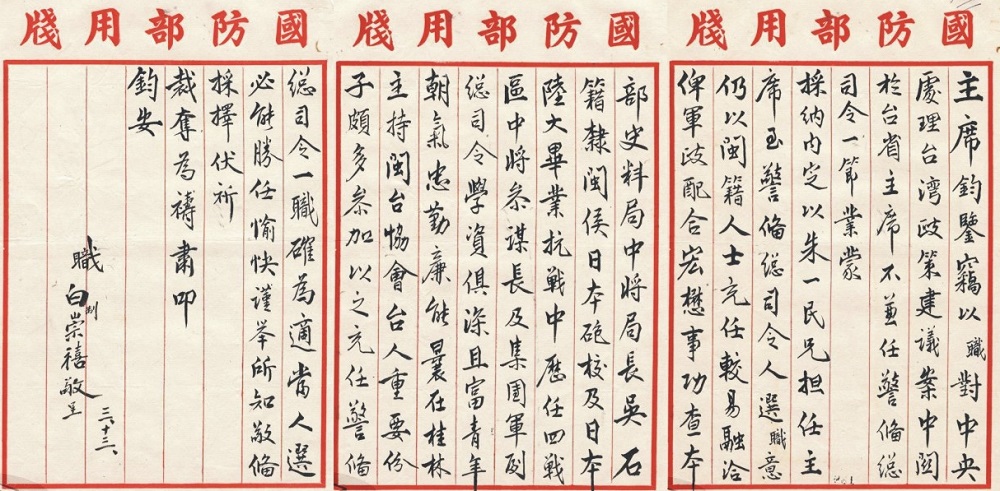 國防部用牋
主席鈞鑒竊以職對中央
處理台湾政策建議案中関
於台省主席不兼任警偹総
司令一節業蒙
採纳内定以朱一民兄担任主
席至警偹総司令人選職意
仍以閩籍人士充任較易融洽
俾軍政配合宏懋事功查本
國防部用牋
部史料局中将局長吳石
籍隸閩侯日本砲校及日本
陸大畢業抗戦中歷任四戦
區中将参谋長及集团軍副
総司令學資俱深且富青年
朝氣忠勤廉能曩在桂林
主持閩台協會台人重要份
子頗多参加以之充任警偹
國防部用牋
総司令一職確為適當人選
必能勝任愉快謹举所知敬偹
採擇伏祈
裁奪為禱肅叩
鈞安
職白制崇禧敬呈